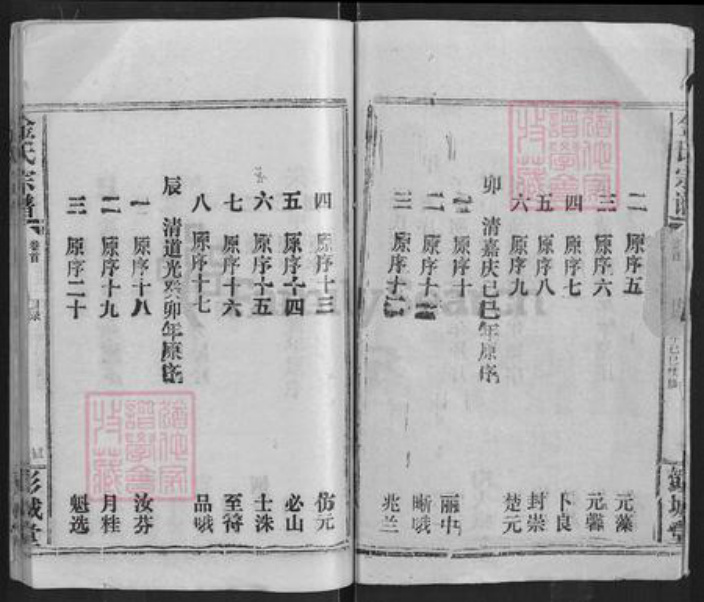 二 原序五 元藻
三 原序六 元馨
四 原序七 卜良
五 原序八 封崇
六 原序九 楚元
卯 清嘉庆己巳年原序
一 原序十 丽中
二 原序十一 晰哦
三 原序十二 兆兰
彭城堂
四 原序十三 仿元
五 原序十四 必山
六 原序十五 士洙
七 原序十六 至符
八 原序十七 品哦
辰 清道光癸卯年原序
一 原序十八 汝芬
二 原序十九 月桂
三 原序二十 魁选
金氏宗谱
卷首
目录
彭城堂